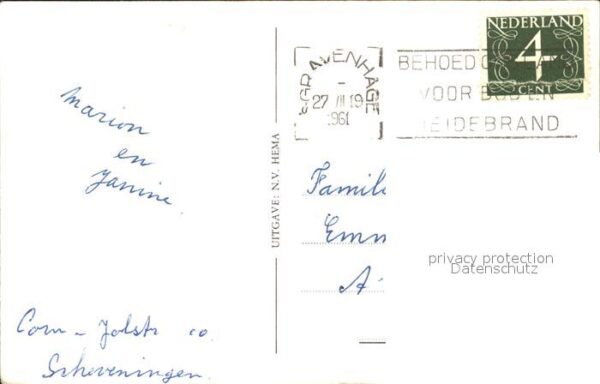 Marion
en
Janine
Scheveningen
UITGAVE: N.V. HEMA
'SGRAVENHAGE
27 III 19
1961
BEHOED
VOOR
HEIDEBRAND
NEDERLAND
4
CENT
Famil
Emm
A
privacy protection
Datenschutz